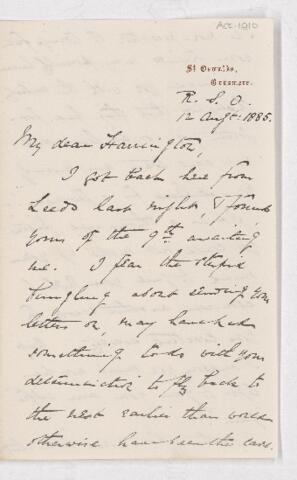 Acc. 1910
St Oswalds,
Grasmere.
R. S. O.
12 Augt: 1885.
My dear Harrington,
I got back here from
Leeds last night, & found
yours of the 9th awaiting
me. I fear the stupid
bungling about sending your
letters on, may have had
something to do with your
determination to fly back to
the nest earlier than would
otherwise have been the case.